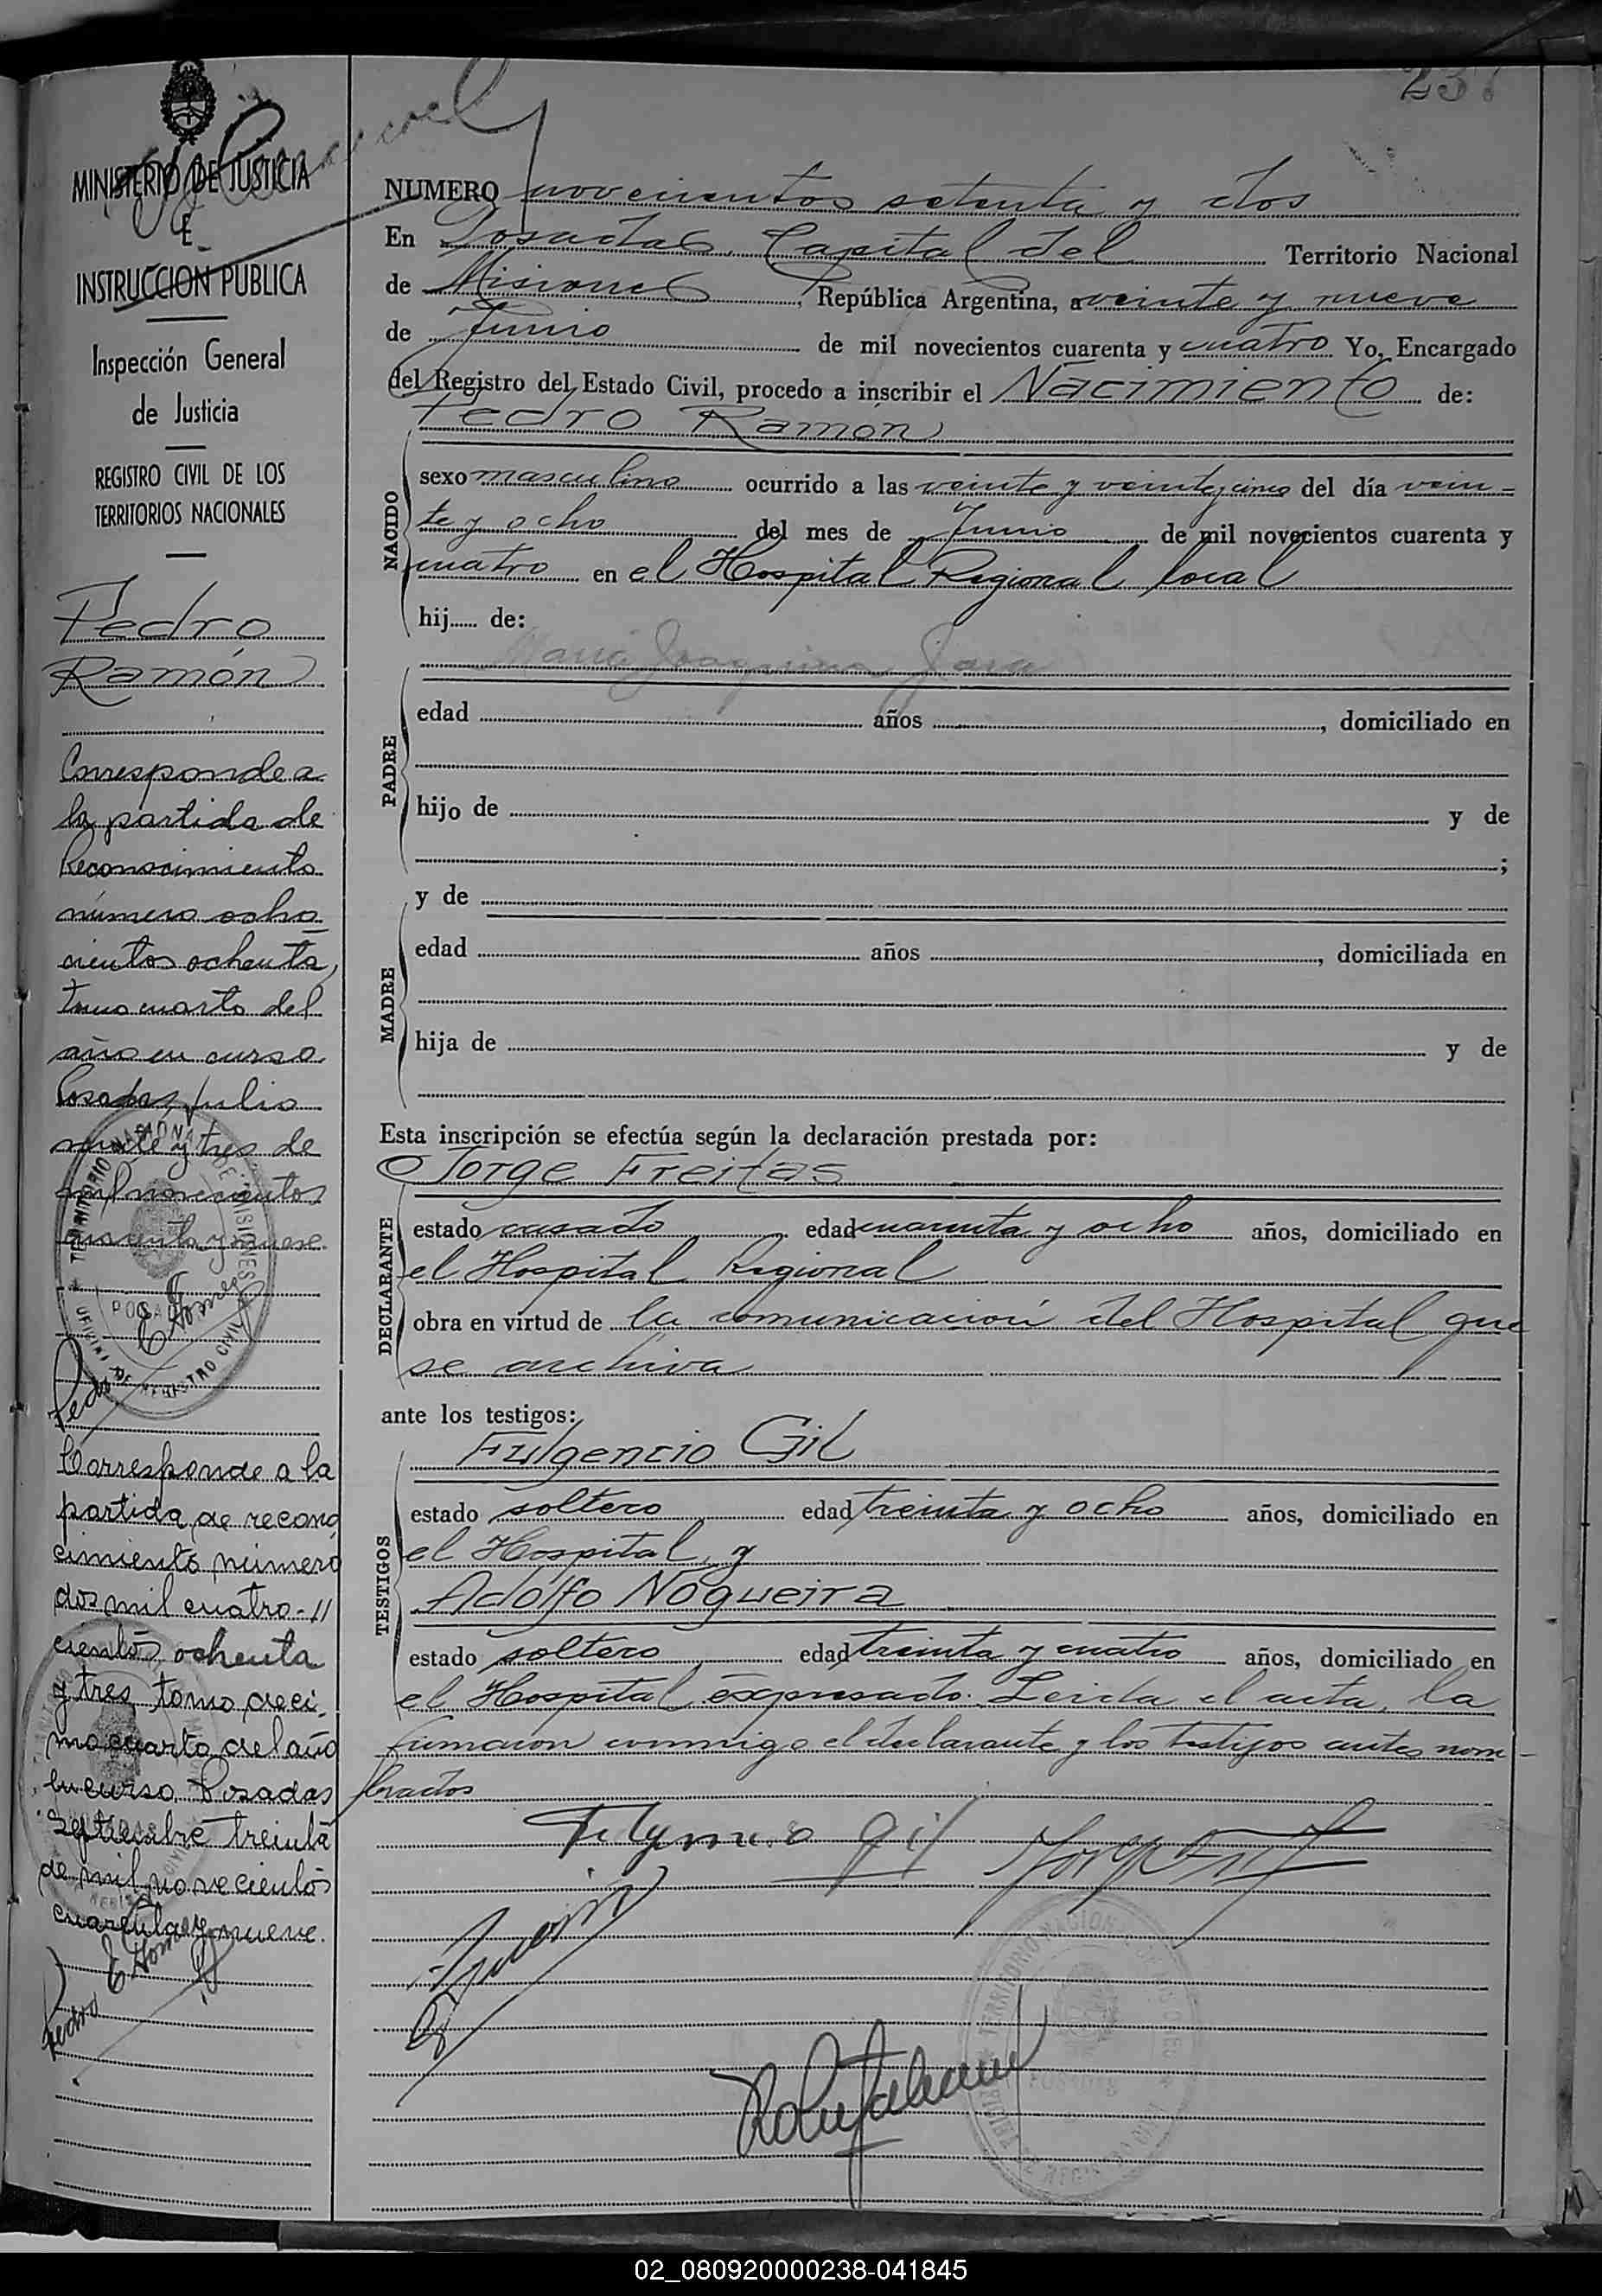 237
MINISTERIO DE JUSTICIA
E
INSTRUCCION PUBLICA
Inspección General
de Justicia
REGISTRO CIVIL DE LOS
TERRITORIOS NACIONALES
Pedro
Ramón
Corresponde a
la partida de
Reconocimiento
número ocho
cientos ochenta,
tomo cuarto del
año en curso.
Posadas, Julio
veinte y tres de
mil novecientos
cuarenta y nueve.
Corresponde a la
partida de recono
cimiento número
dos mil cuatro-//
cientos ochenta
y tres tomo deci,
mo cuarto del año
en curso. Posadas
Septiembre treinta
de mil novecientos
cuarenta y nueve.
Pedro
NUMERO novecientos setenta y dos
En Posadas, Capital del Territorio Nacional
de Misiones, República Argentina, a veinte y nueve
de Junio de mil novecientos cuarenta y cuatro Yo, Encargado
del Registro del Estado Civil, procedo a inscribir el Nacimiento de:
Pedro Ramón
NACIDO
sexo masculino ocurrido a las veinte y veinte y cinco del día vein-
te y ocho del mes de Junio de mil novecientos cuarenta y
cuatro en el Hospital Regional local
hij...... de:
María Joaquina Jara
PADRE
edad años, domiciliado en
hijo de y de
;
MADRE
y de
edad años, domiciliada en
hija de y de
Esta inscripción se efectúa según la declaración prestada por:
Jorge Freitas
DECLARANTE
estado casado edad cuarenta y ocho años, domiciliado en
el Hospital Regional
obra en virtud de la comunicación del Hospital que
se archiva
ante los testigos:
Fulgencio Gil
TESTIGOS
estado soltero edad treinta y ocho años, domiciliado en
el Hospital, y
Adolfo Nogueira
estado soltero edad treinta y cuatro años, domiciliado en
el Hospital expresado. Leída el acta, la
firmaron conmigo el declarante y los testigos antes nom-
brados
02_080920000238-041845